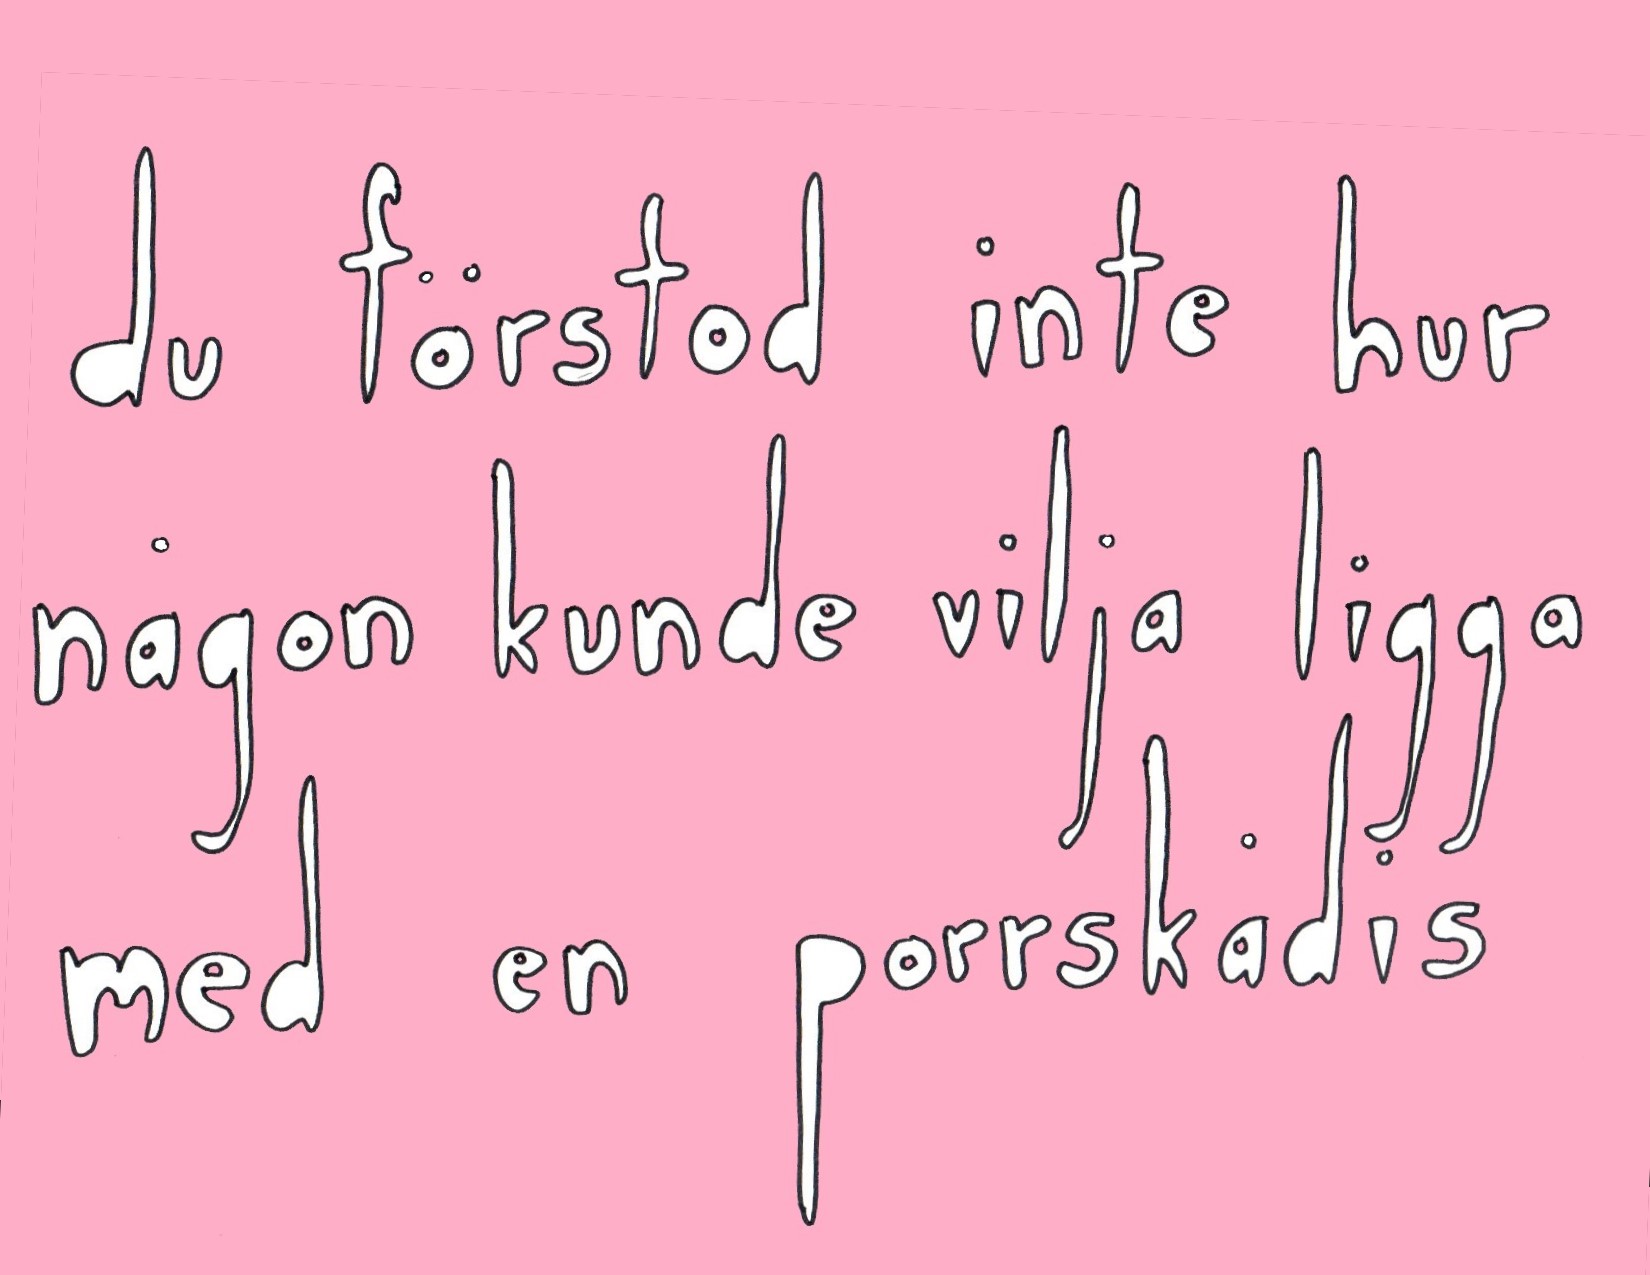 du förstod inte hur
någon kunde vilja ligga
med en porrskådis